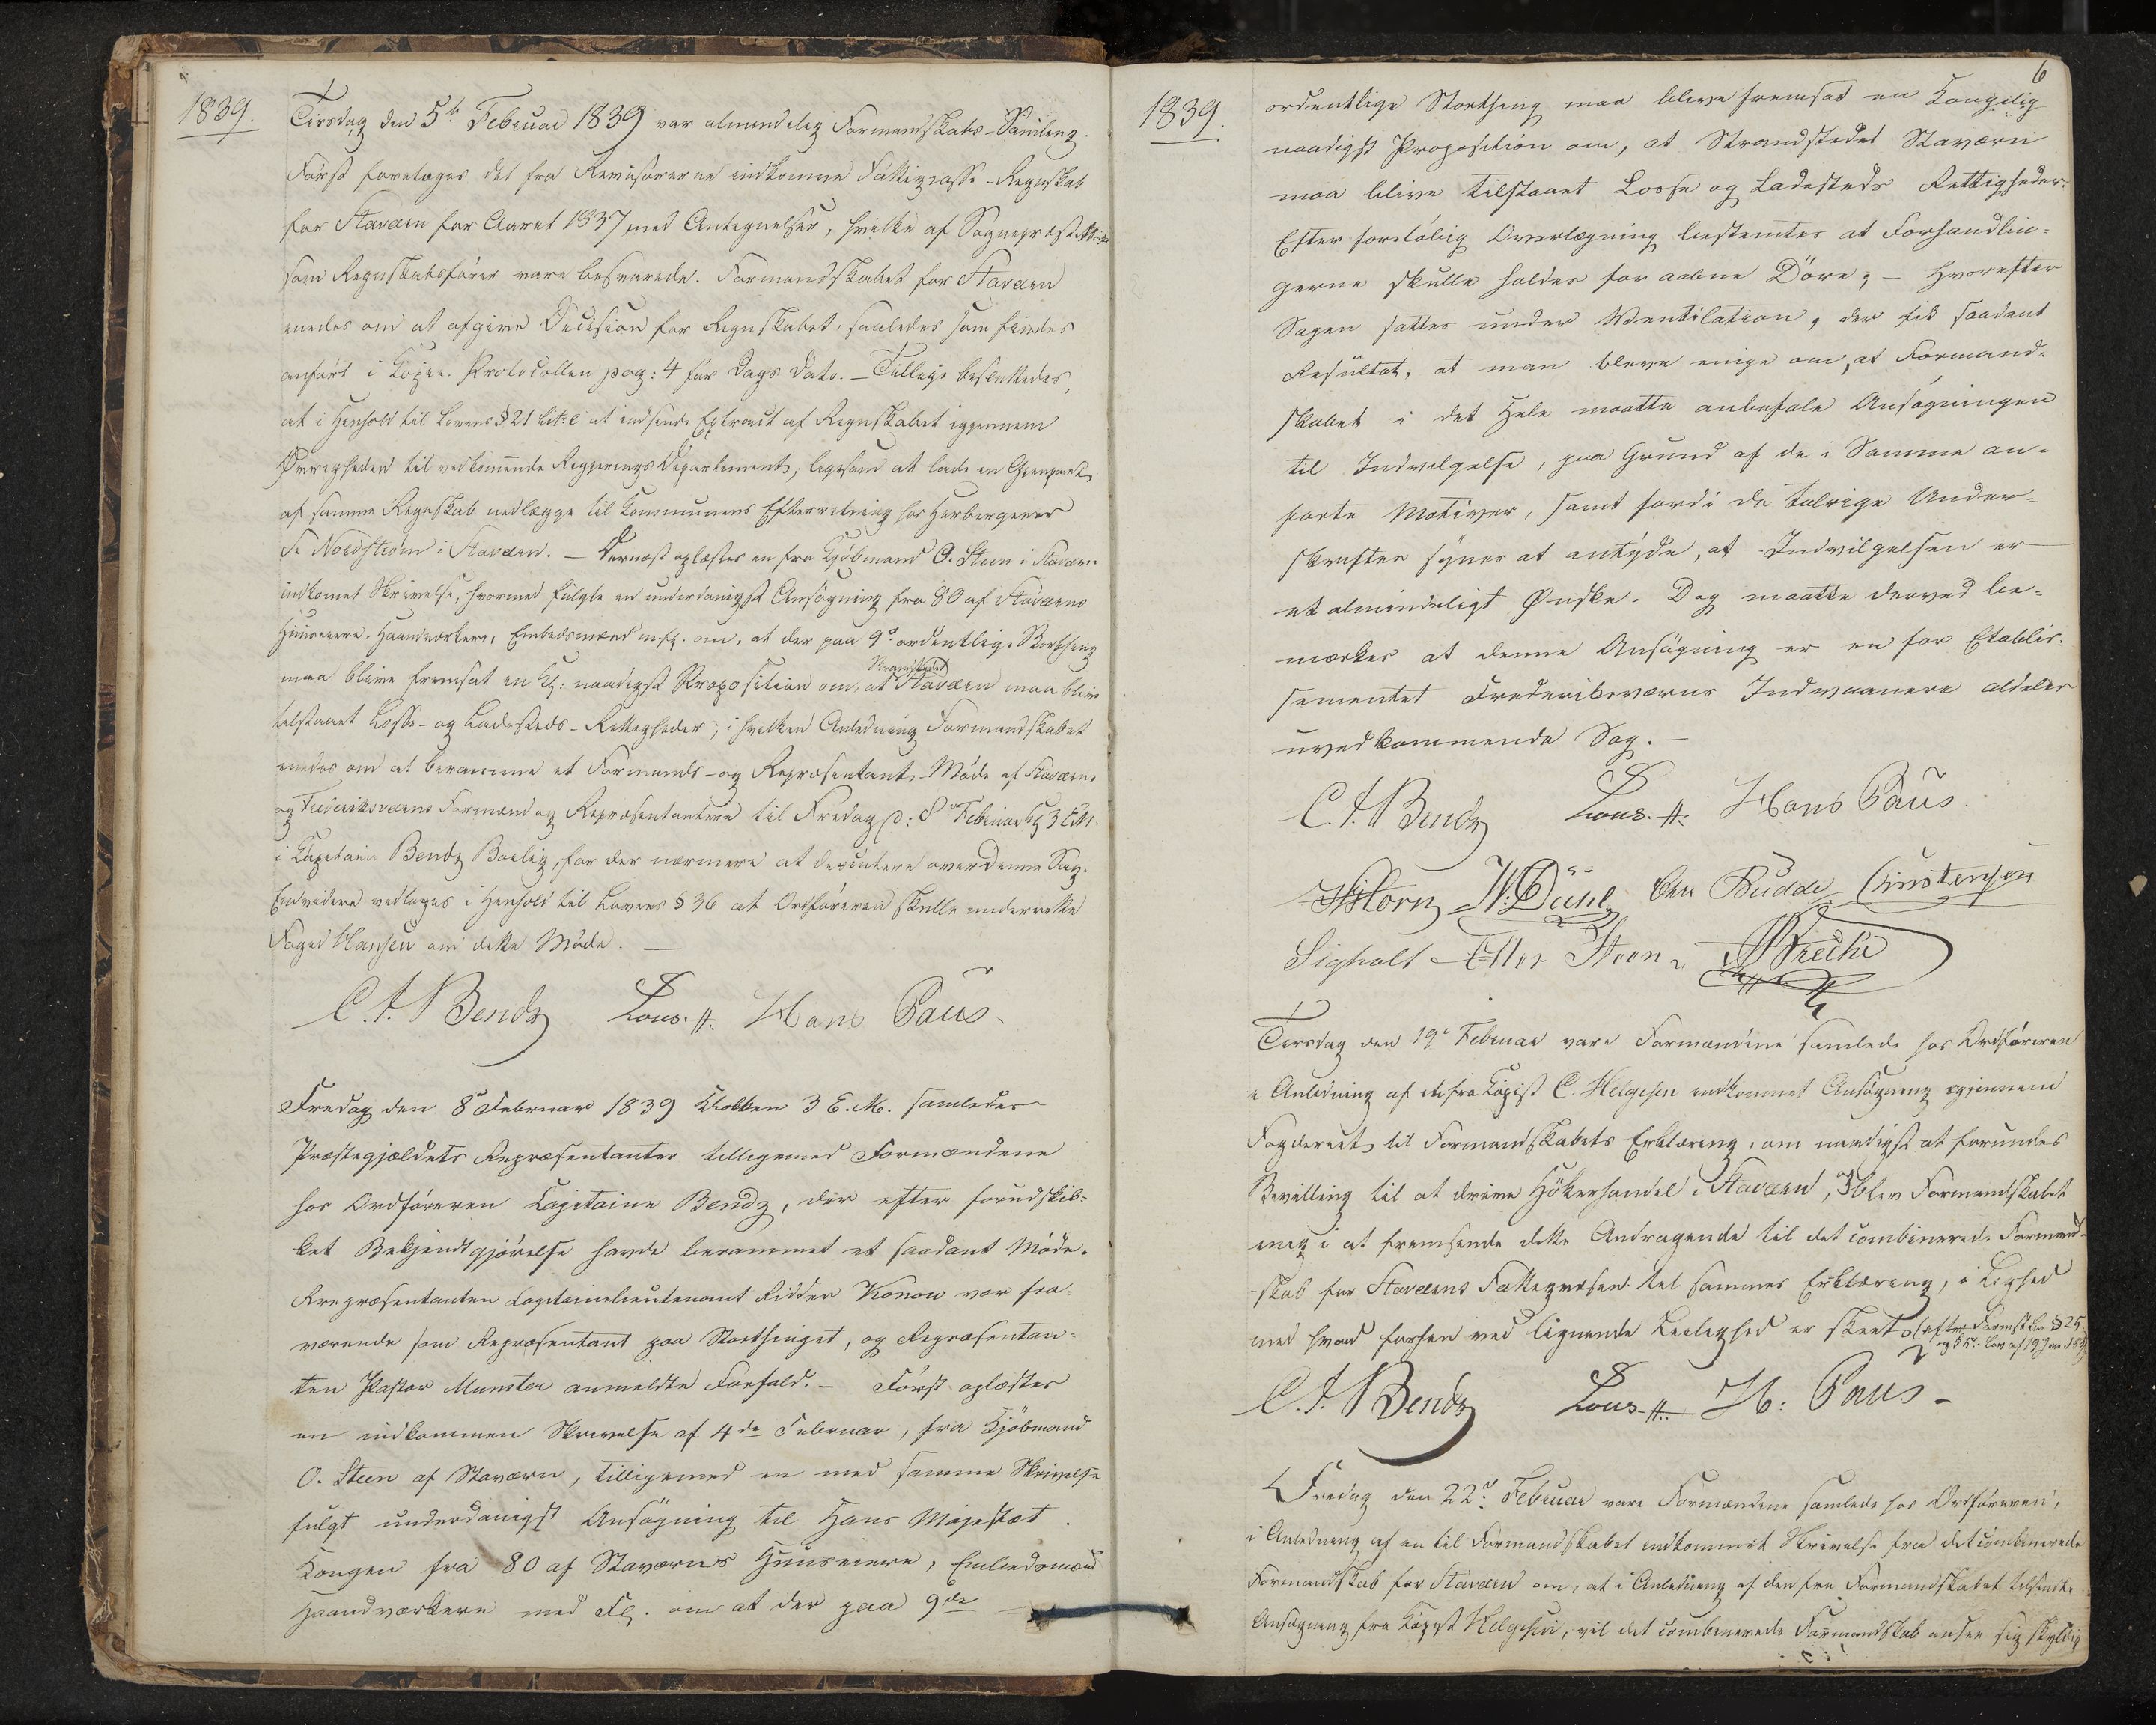 1839.
Tirsdag den 5te Februar 1839 var almindelig Formandskabs-Samling.
Först foretoges det fra Revisorerne indkomne Fattigcasse-Regnskab
for Stavern for Aaret 1837 med Antegnelser, hvilke af Sognepræst
som Regnskabsförer vare besvarede. Formandskabet for Stavern
enedes om at afgive Decision for Regnskabet, saaledes som findes
anfört i Copie-Protocollen pag: 4 for Dags Dato. – Tillige besluttedes,
at i Henhold til Lovens § 21 Lit: e at indsende Extract af Regnskabet igjennem
Øvrigheden til vedkommende Regjerings Departement, ligesom at lade en Gjenpart
af samme Regnskab nedlægge til Communens Efterretning hos Herbergeer
Nordström i Stavern. – Dernæst oplæstes en fra Kjöbmand O. Steen i Stavern
indkommet Skrivelse, hvormed fulgte en underdanigst Ansögning fra 80 af Staverns
Huuseiere, Haandværkere, Embedsmænd m: fl. om, at der paa 9de ordentlige Storthing
maa blive fremsat en Kg: naadigst Proposition om, at Strandstedet Stavern maa blive
tilstaaet Losse- og Ladesteds-Rettigheder; i hvilken Anledning Formandskabet
enedes om at beramme et Formands- og Repræsentant-Möde af Staverns
og Frideriksværns Formænd og Repræsentantere til Fredag d: 8de Februar Kl 3 E.M.
i Capitain Bendz Bolig, for der nærmere at decutere over denne Sag.
Endvidere vedtoges i Henhold til Lovens § 36 at Ordföreren skulle underrette
Foged Hansen om dette Möde. –
C. F. Bendz Lous. H. Hans Paus.
Fredag den 8de Februar 1839 Klokken 3 E.M. samledes
Præstegjældets Repræsentanter tilligemed Formændene
hos Ordföreren Capitaine Bendz, der efter forudskik-
ket Bekjendtgjörelse havde berammet et saadant Möde.
Repræsentanten Capitainlieutenant Ridder Konow var fra-
værende som Repræsentant paa Storthinget, og Repræsentan-
ten Pastor Munster anmeldte Forfald. – Först oplæstes
en indkommen Skrivelse af 4de Februar, fra Kjöbmand
O. Steen af Staværn, tilligemed en med samme Skrivelse
fulgt underdanigst Ansögning til Hans Majestæt
Kongen fra 80 af Staværns Huuseiere, Embedsmænd
Haandværkere med Fl. om at der paa 9de
6
1839.
ordentlige Storthing maa blive fremsat en Kongelig
naadigst Proposition om, at Strandstedet Staværn
maa blive tilstaaet Losse og Ladesteds Rettigheder.
Efter foreløbig Overlægning bestemtes at Forhandlin-
gerne skulle holdes for aabne Döre; – hvorefter
Sagen sattes under Ventilation, der fik saadant
Resultat, at man bleve enige om, at Formand-
skabet i det Hele maatte anbefale Ansögningen
til Indvilgelse, paa Grund af de i Samme an-
förte Motiver, samt fordi de talrige Under-
skrifter synes at antyde, at Indvilgelsen er
et almindeligt Ønske. Dog maatte derved be-
mærkes at denne Ansögning er en for Etablis-
sementet Frederiksværns Indvaanere aldeles
uvedkommende Sag. –
C. F. Bendz Lous. H. Hans Paus.
Horn Budde Christensen
Sigholt Steen
Tirsdag den 19de Februar vare Formændene samlede hos Ordföreren
i Anledning af en fra Copist C. Helgesen indkommet Ansögning igjennem
Fogderiet til Formandskabets Erklæring, om naadigst at forundes
Bevilling til at drive Hökerhandel i Stavern, og blev Formandskabet
enig i at fremsende dette Andragende til det combinerede Formand-
skab for Staverns Fattigvæsen til sammes Erklæring, i Lighed
med hvad forhen ved lignende Leilighed er skeet. (efter Formsk. Lov § 25
og § 5 Lov af 19 Jan
C. F. Bendz Lous. H. H: Paus –
Fredag den 22de Februar vare Formændene samlede hos Ordföreren,
i Anledning af en til Formandskabet indkommet Skrivelse fra det combinerede
Formandskab for Stavern om, at i Anledning af den fra Formandskabet tilsendte
Ansögning fra Copist Helgesen, vil det combinerede Formandskab ansee sig skyldig